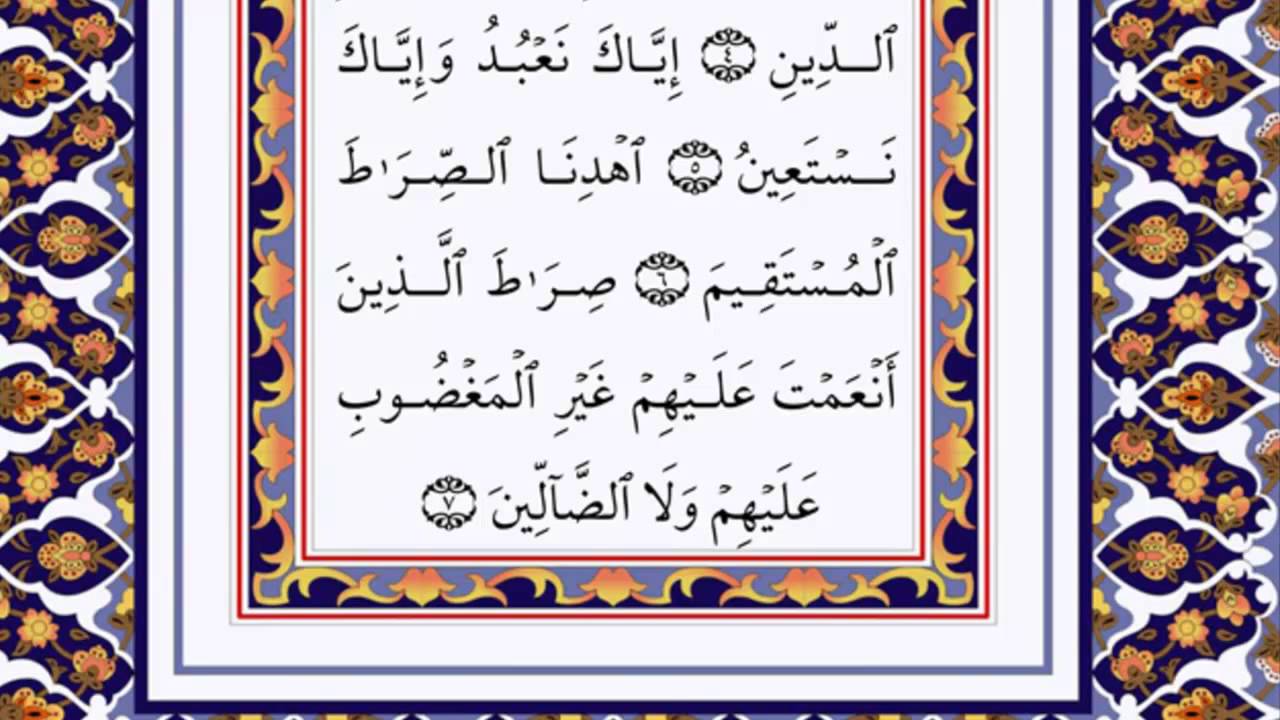 ٱلدِّينِ ٤ إِيَّاكَ نَعْبُدُ وَإِيَّاكَ
نَسْتَعِينُ ٥ ٱهْدِنَا ٱلصِّرَٰطَ
ٱلْمُسْتَقِيمَ ٦ صِرَٰطَ ٱلَّذِينَ
أَنْعَمْتَ عَلَيْهِمْ غَيْرِ ٱلْمَغْضُوبِ
عَلَيْهِمْ وَلَا ٱلضَّآلِّينَ ٧